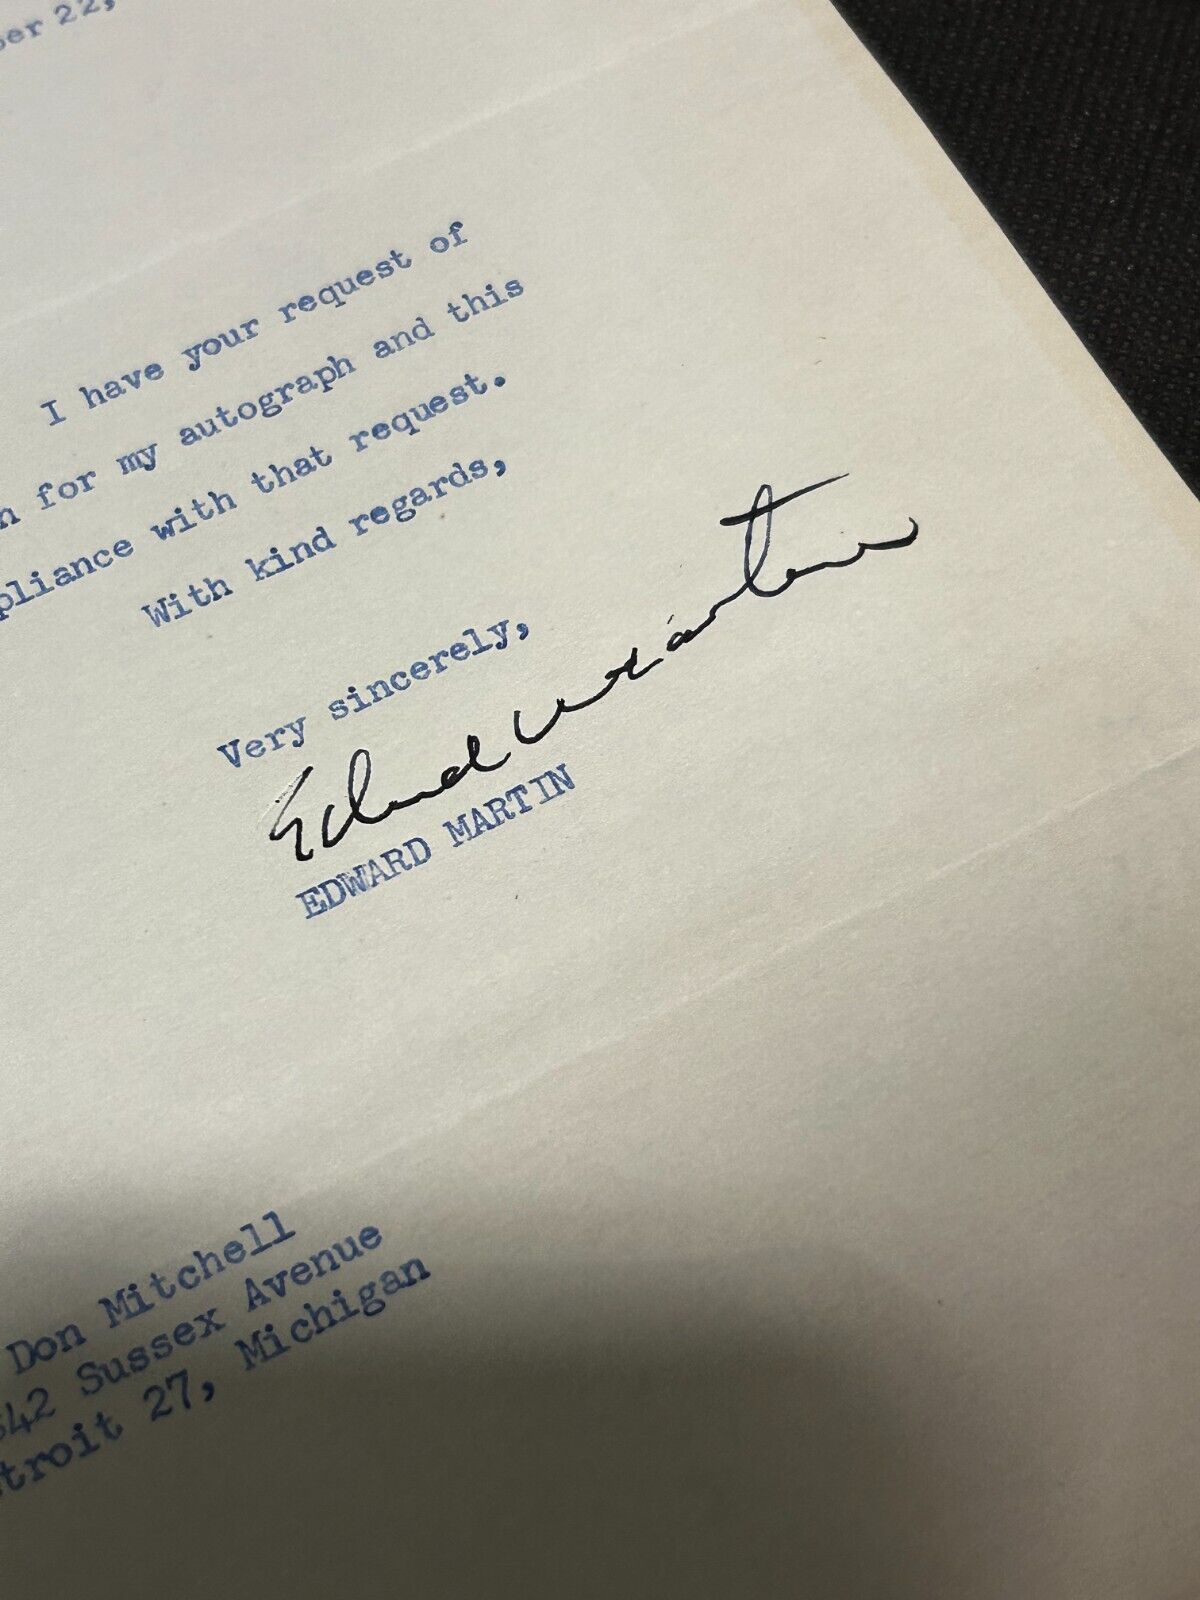 ber 22,
I have your request of
n for my autograph and this
pliance with that request.
With kind regards,
Very sincerely,
Edward Martin
EDWARD MARTIN
Don Mitchell
542 Sussex Avenue
troit 27, Michigan